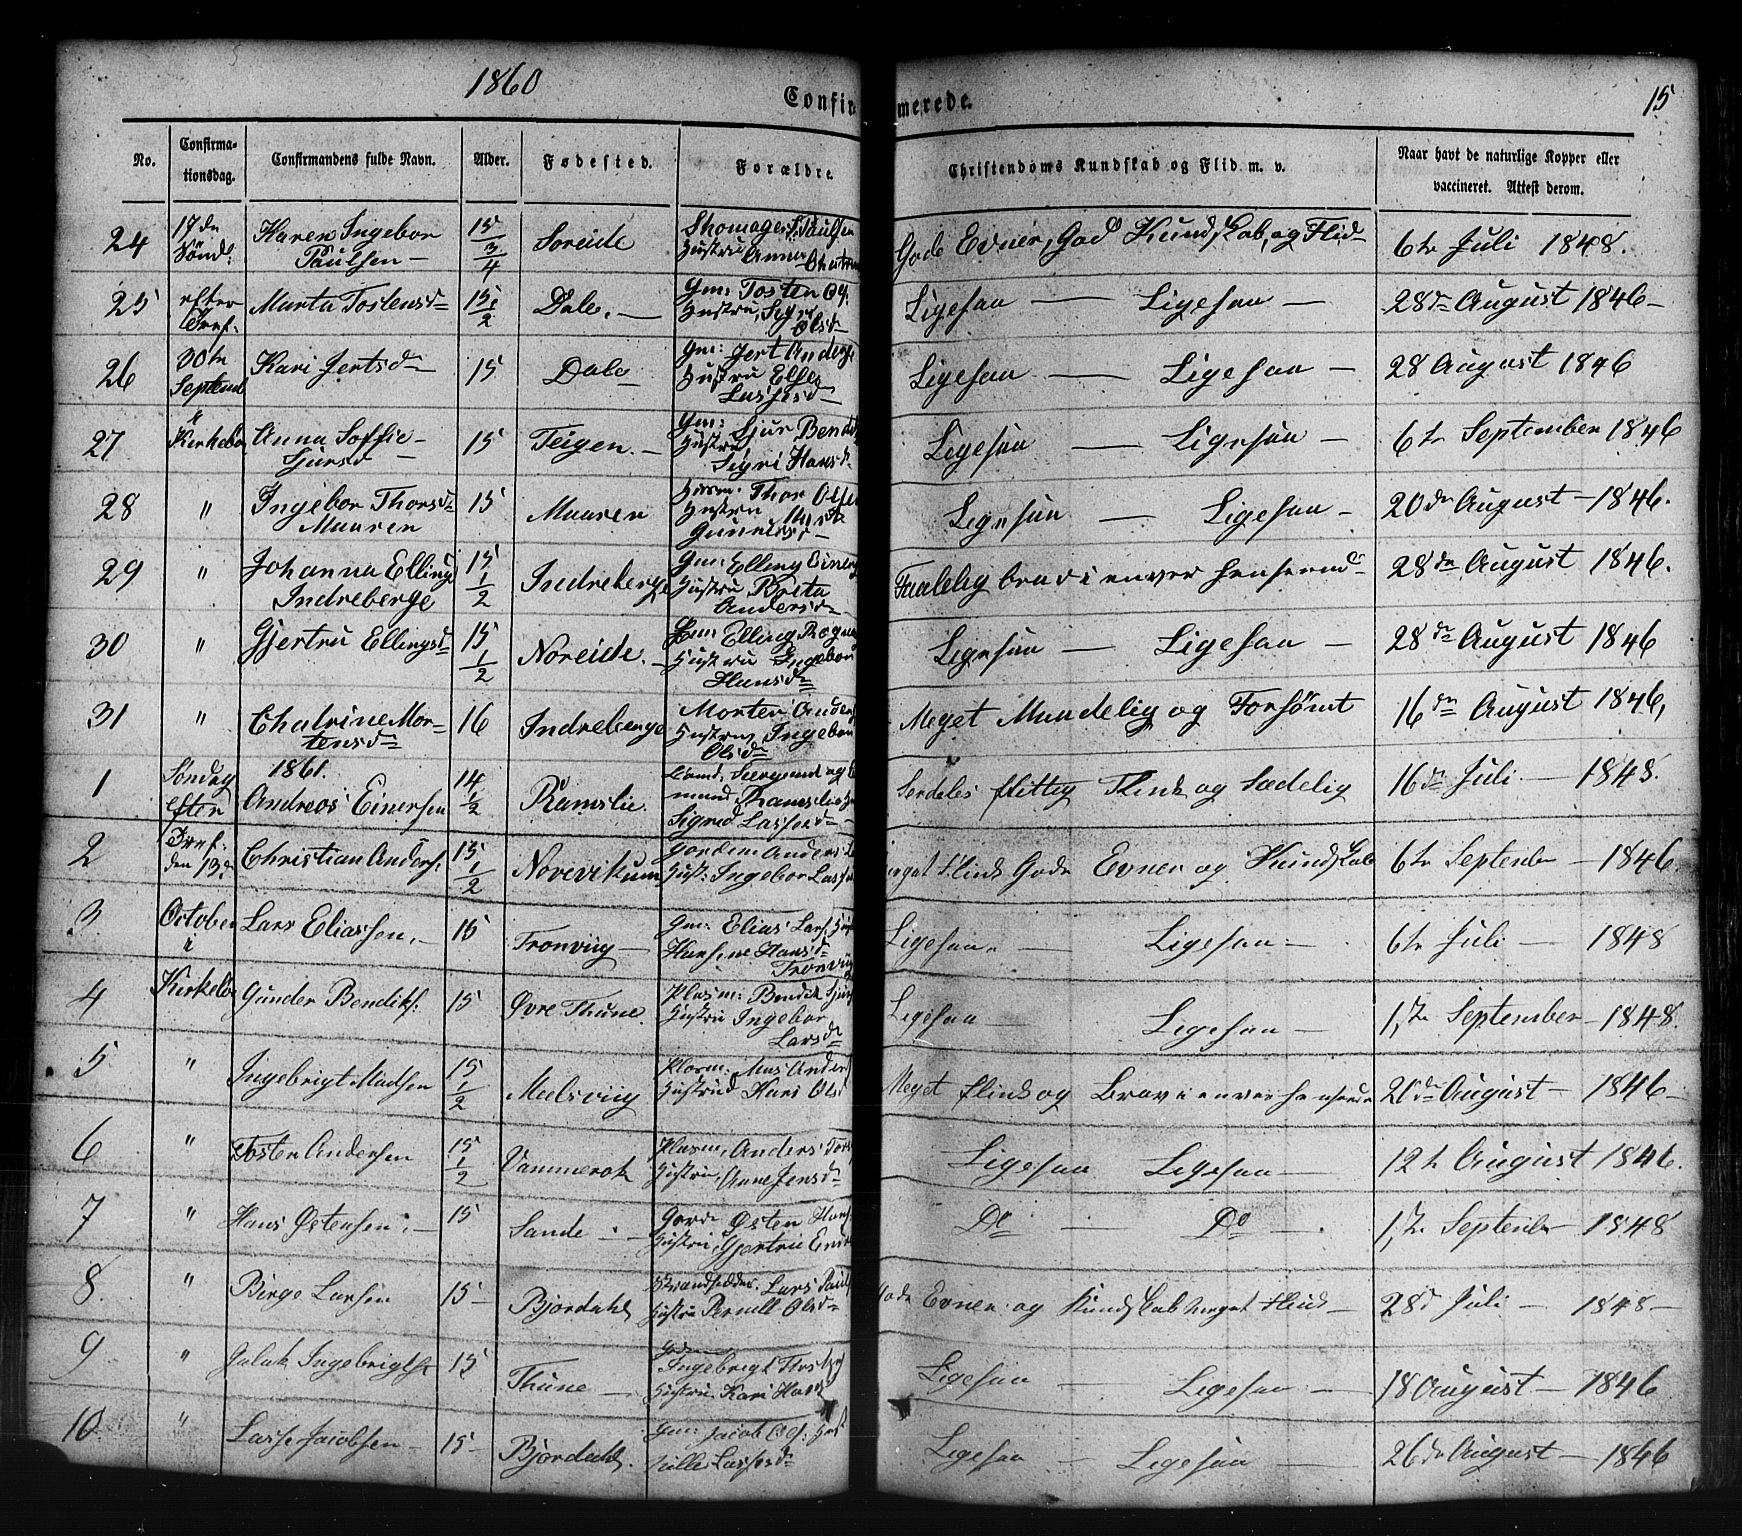 1860
Confirmerede.
15
No. Confirma-tionsdag. Confirmandens fulde Navn. Alder. Fødested. Forældre. Christendoms Kundskab og Flid m. v. Naar havt de naturlige Kopper eller vaccineret. Attest derom.
24 17de Sønd: Karen Ingebor Paulsen 15 3/4 Soreide Skomager Paulsen Hustru Anna Gode Evner, God Kundskab, og Flid 6te Juli 1848.
25 efter Tref: Marta Tostensd 15 1/2 Dale. Gm: Tosten Hustru, Olsd Ligesaa — Ligesaa — 28de August 1846
26 30te Septemb Kari Jertsd 15 Dale Gm: Jert Hustru Else Lassesd Ligesaa — Ligesaa — 28 August 1846
27 i Kirkebø Anna Soffie Sjursd 15 Teigen. Gm: Sjur Hustru Sigri Hansd Ligesaa — Ligesaa — 6te September 1846
28 " Ingebor Thorsd Maaren 15 Maaren Thor Olsen Hustru Ligesaa — Ligesaa — 20de August — 1846.
29 " Johanna Elling Indreberge 15 1/2 Indreberge Gm: Elling Einer Hustru Brita Andersd Taalelig brav i enver henseende 28de August 1846.
30 " Gjertru Ellingsd 15 1/2 Noreide. Gm: Elling Hustru Ingebor Hansd Ligesaa — Ligesaa — 28de August 1846
31 " Chatrine Mortensd 16 Indreberge Morten Anders Hustru Ingebor Olsd Meget Maadelig og Forsømt 16de August 1846,
1861.
1 Søndag efter Andreas Einersen 14 1/2 Ramslie Sigrid Lassesd Serdeles flittig Flink og Sædelig 16de Juli — 1848.
2 Tref: den 13de Christian Anders: 15 1/2 Norevikum Anders Hust: Ingebor Flink Gode Evner og Kundskab 6te September — 1846.
3 October i Lars Eliassen 15 Tronviig Gm: Elias Lars: Hansine Hansd Tronviig Ligesaa Ligesaa 6te Juli — 1848
4 Kirkebø Gunder Bendiks: 15 Øvre Thune. Plasm: Bendik Hustru Ingebor Larsd Ligesaa — Ligesaa — 1,te September — 1848.
5 " Ingebrigt Madsen 15 1/2 Meelsviig Plasm: Mas Hustru Kari Ols: Meget flink og Brav i enver henseende 20de August — 1846
6 " Tosten Andersen 15 1/2 Vammerok Plasm, Anders Hustru, Anne Jensd Ligesaa Ligesaa — 12te August 1846.
7 " Hans Østensen 15 Sande Østen Hans Hustru, Gjertrü Do — Do — 1,te September 1848
8. " Birge Larsen 15 — Bjordahl Strandsidder. Lars Hustru Pernill Olsd Gode Evner og Kundskab meget Flink — 28de Juli — 1848 —
9 " Ingebrigts: 15 Thune Ingebrigt Hustru Kari Ligesaa — Ligesaa — 18 August — 1846
10 " Lasse Jacobsen 15 — Bjordahl. Gm: Jacob Ols: Lassesd Ligesaa — Ligesaa — 26de August — 1846